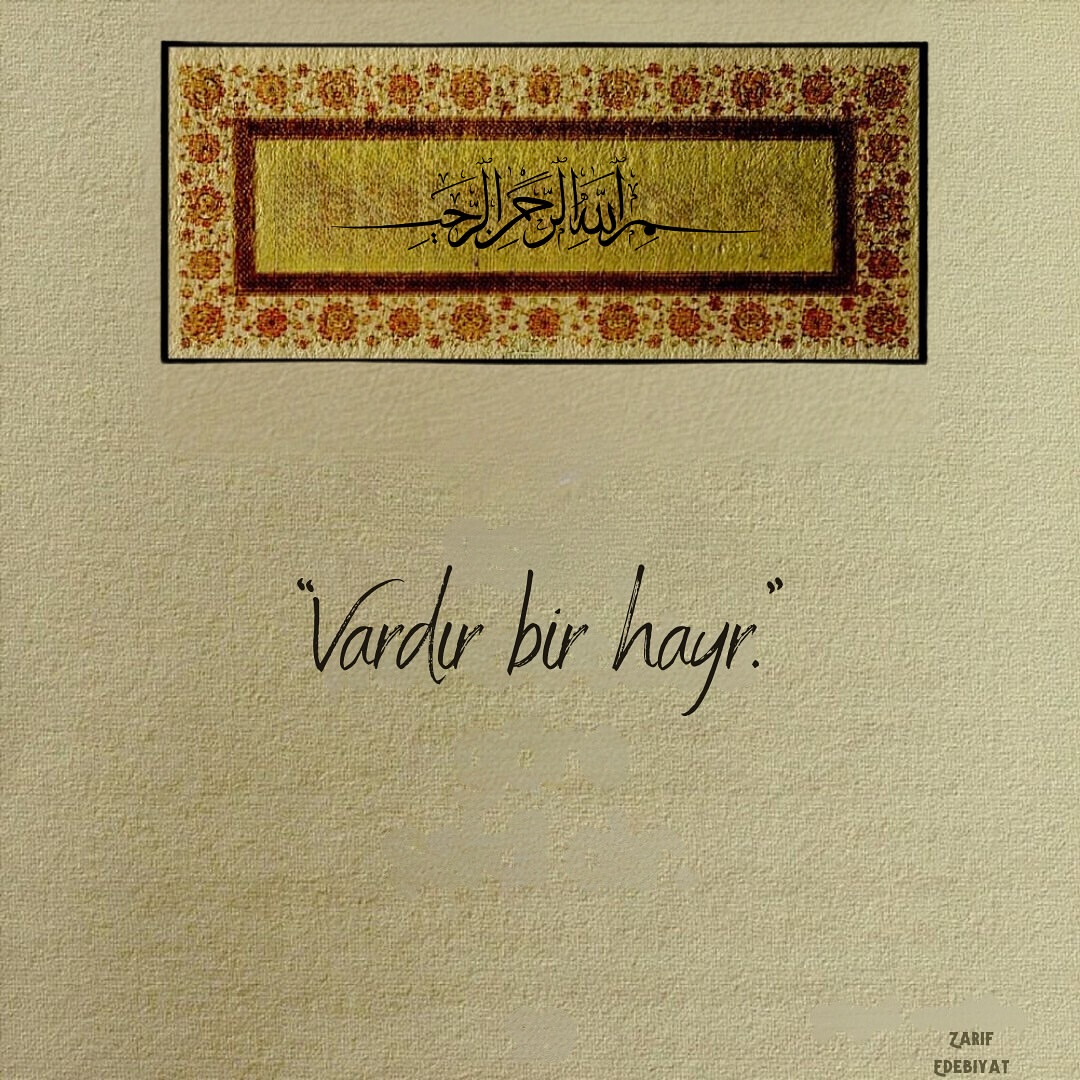 بسم الله الرحمن الرحيم
“Vardır bir hayr.”
ZARIF
EDEBIYAT